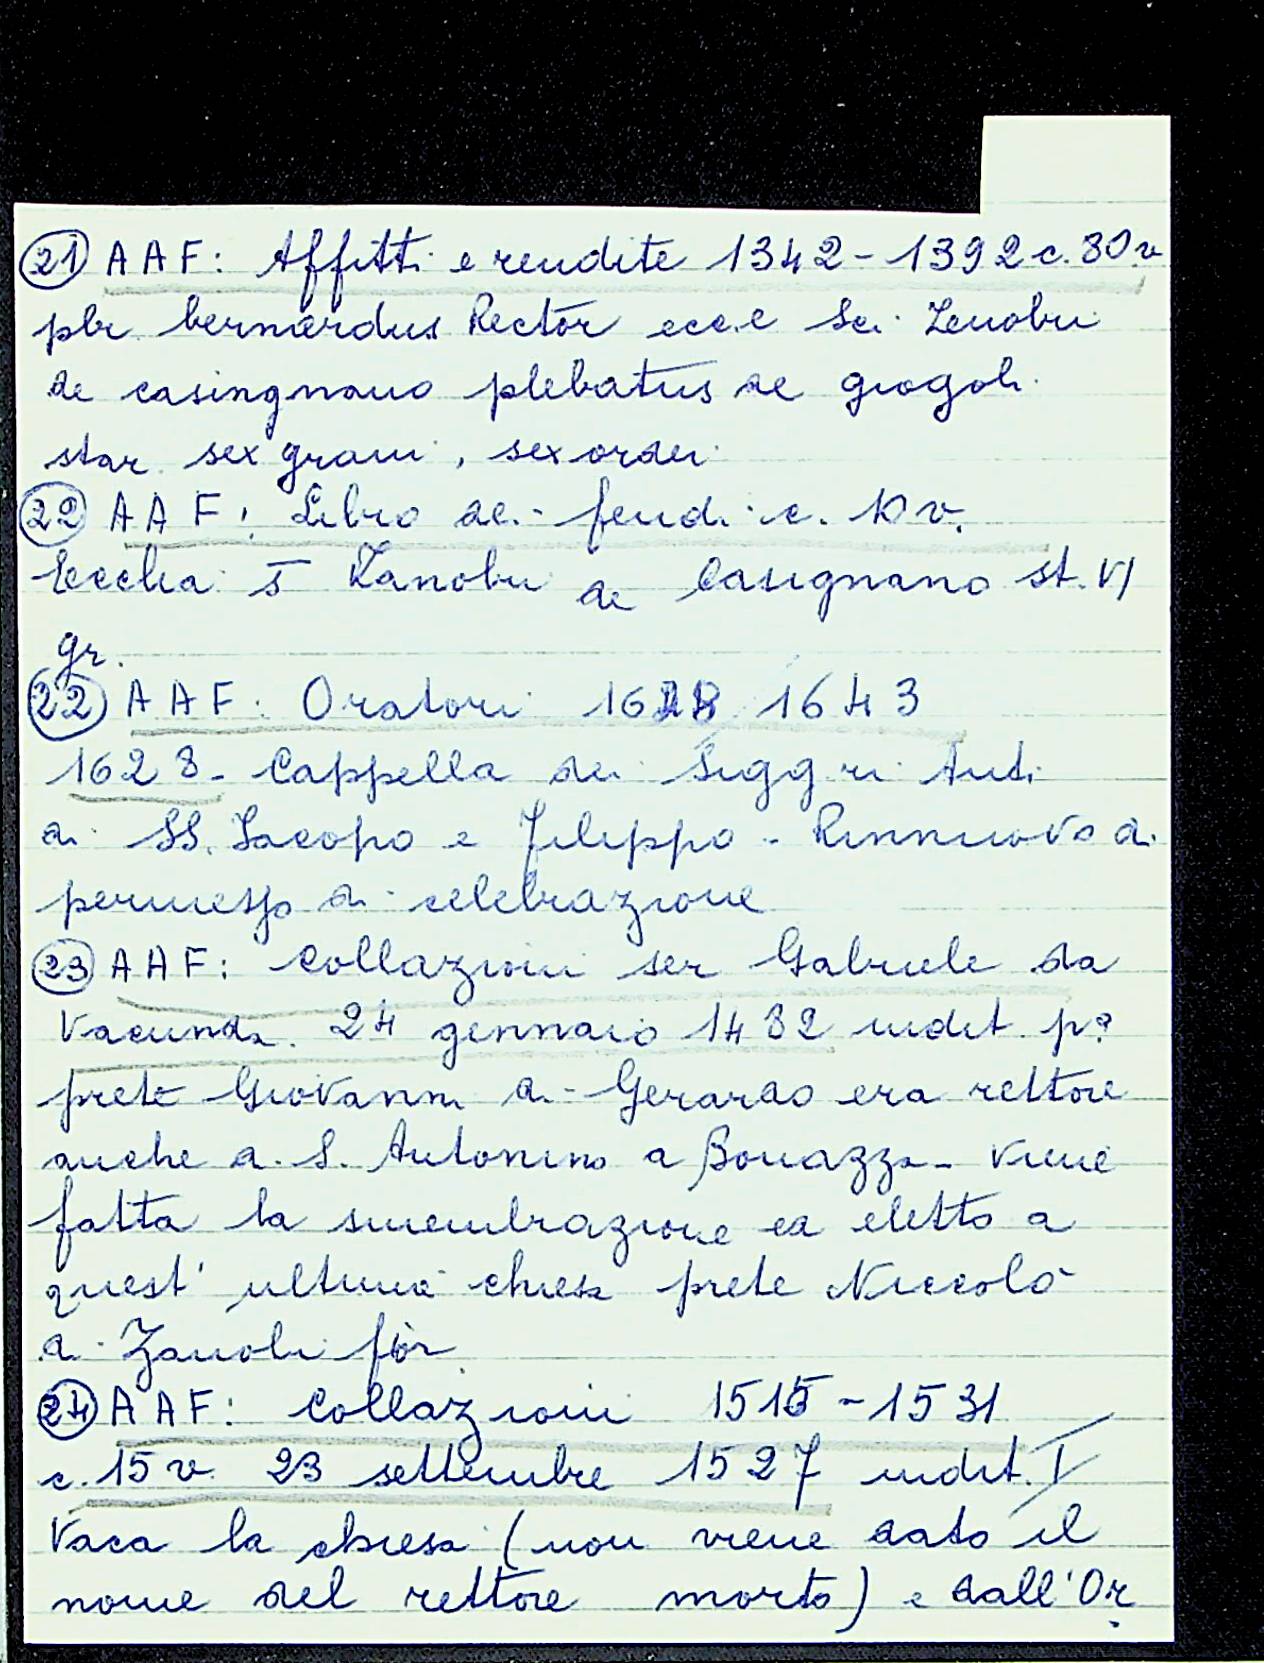 21 AAF: Affitti e rendite 1342-1392 c. 80 v
pbr. bernardus Rector ecc.e Sci. Zenobii
de casingnano plebatus de giogoli
star sex grani, sex ordei
22 AAF: Libro dei feudi c. 10 v.
Ecclia S Zanobii de Casignano st. VI
gr.
22 AAF: Oratori 1628 1643
1628 - Cappella dei Sigg.ri Anti
di SS. Jacopo e Filippo - Rinnuovo di
permesso di celebrazione
23 AAF: Collazioni ser Gabriele da
Vacunda. 24 gennaio 1482 indit. pª
prete Giovanni di Gerardo era rettore
anche a S. Antonino a Bonazza - Viene
fatta la smembrazione ed eletto a
quest'ultima chiesa prete Niccolò
di Zanobi fior
24 AAF: Collazioni 1515-1531
c. 15 v. 23 settembre 1527 indit. I
Vaca la chiesa (non viene dato il
nome del rettore morto) e dall'Or.